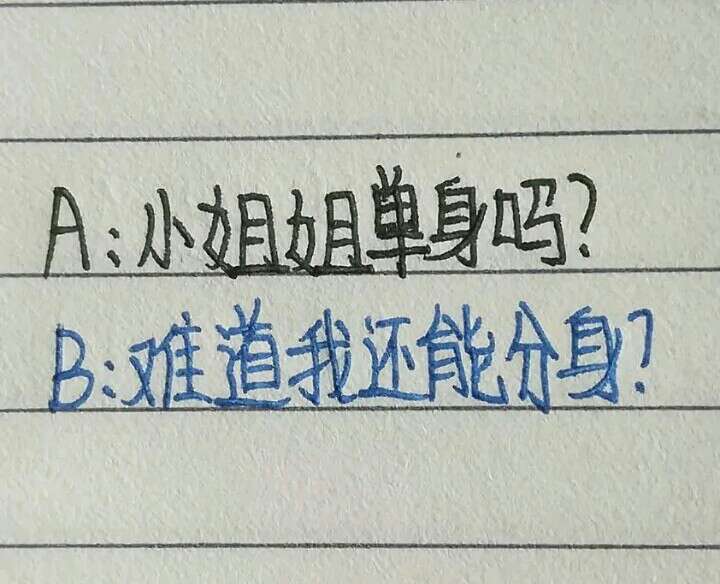 A:小姐姐单身吗?
B:难道我还能分身?